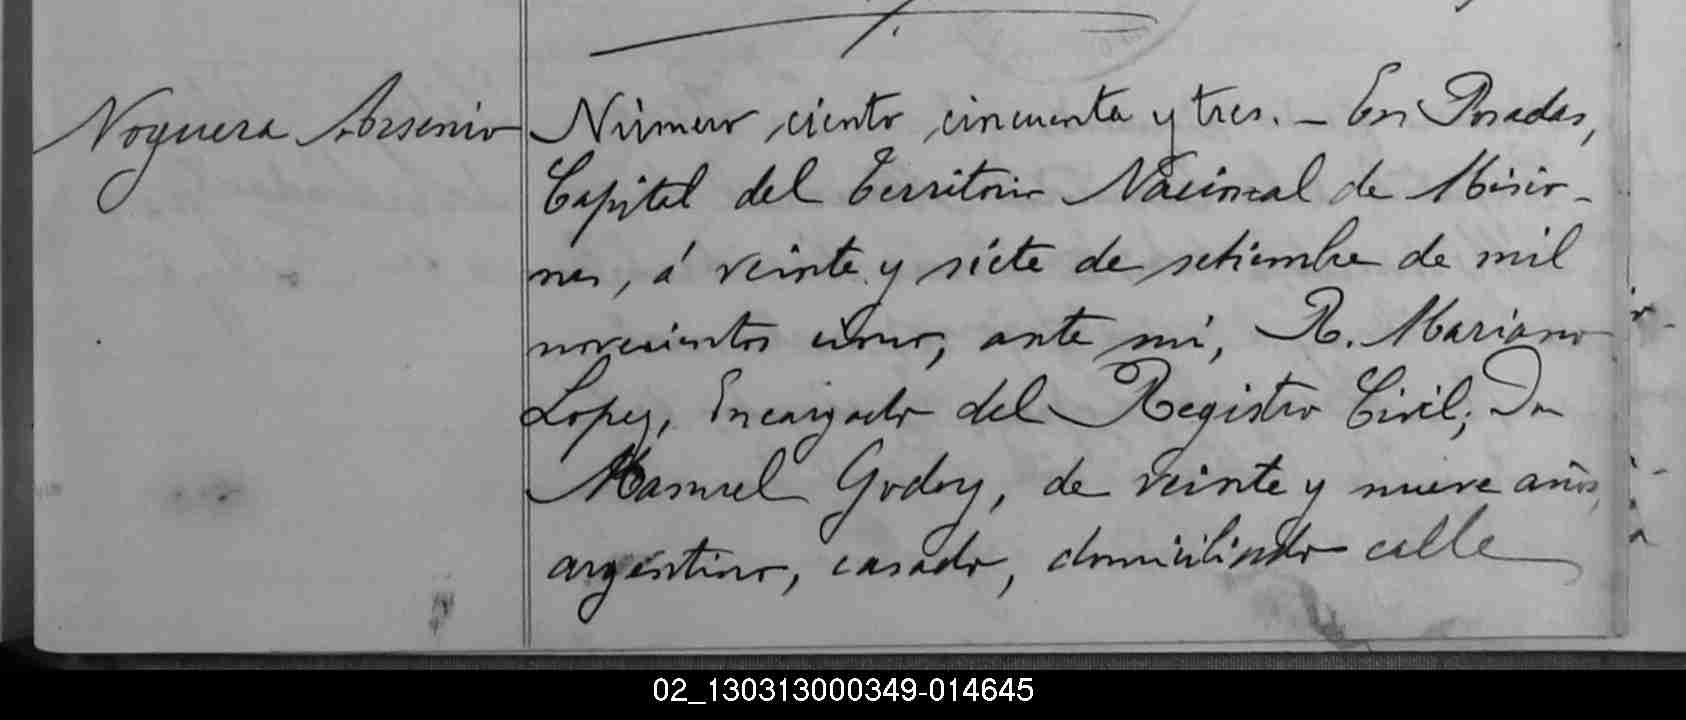 Noguera Arsenio
Número ciento cincuenta y tres. – En Posadas,
Capital del Territorio Nacional de Misio-
nes, á veinte y siete de setiembre de mil
novecientos cinco, ante mí, R. Mariano
Lopez, Encargado del Registro Civil; Don
Manuel Godoy, de veinte y nueve años,
argentino, casado, domiciliado calle
02_130313000349-014645